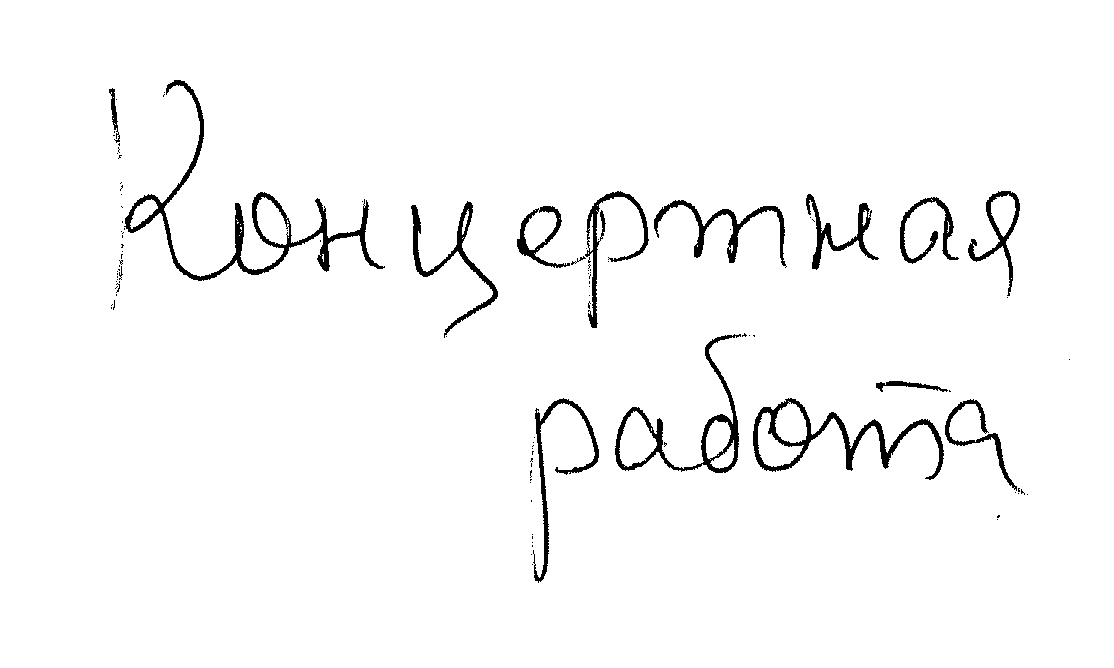 Концертная
работа